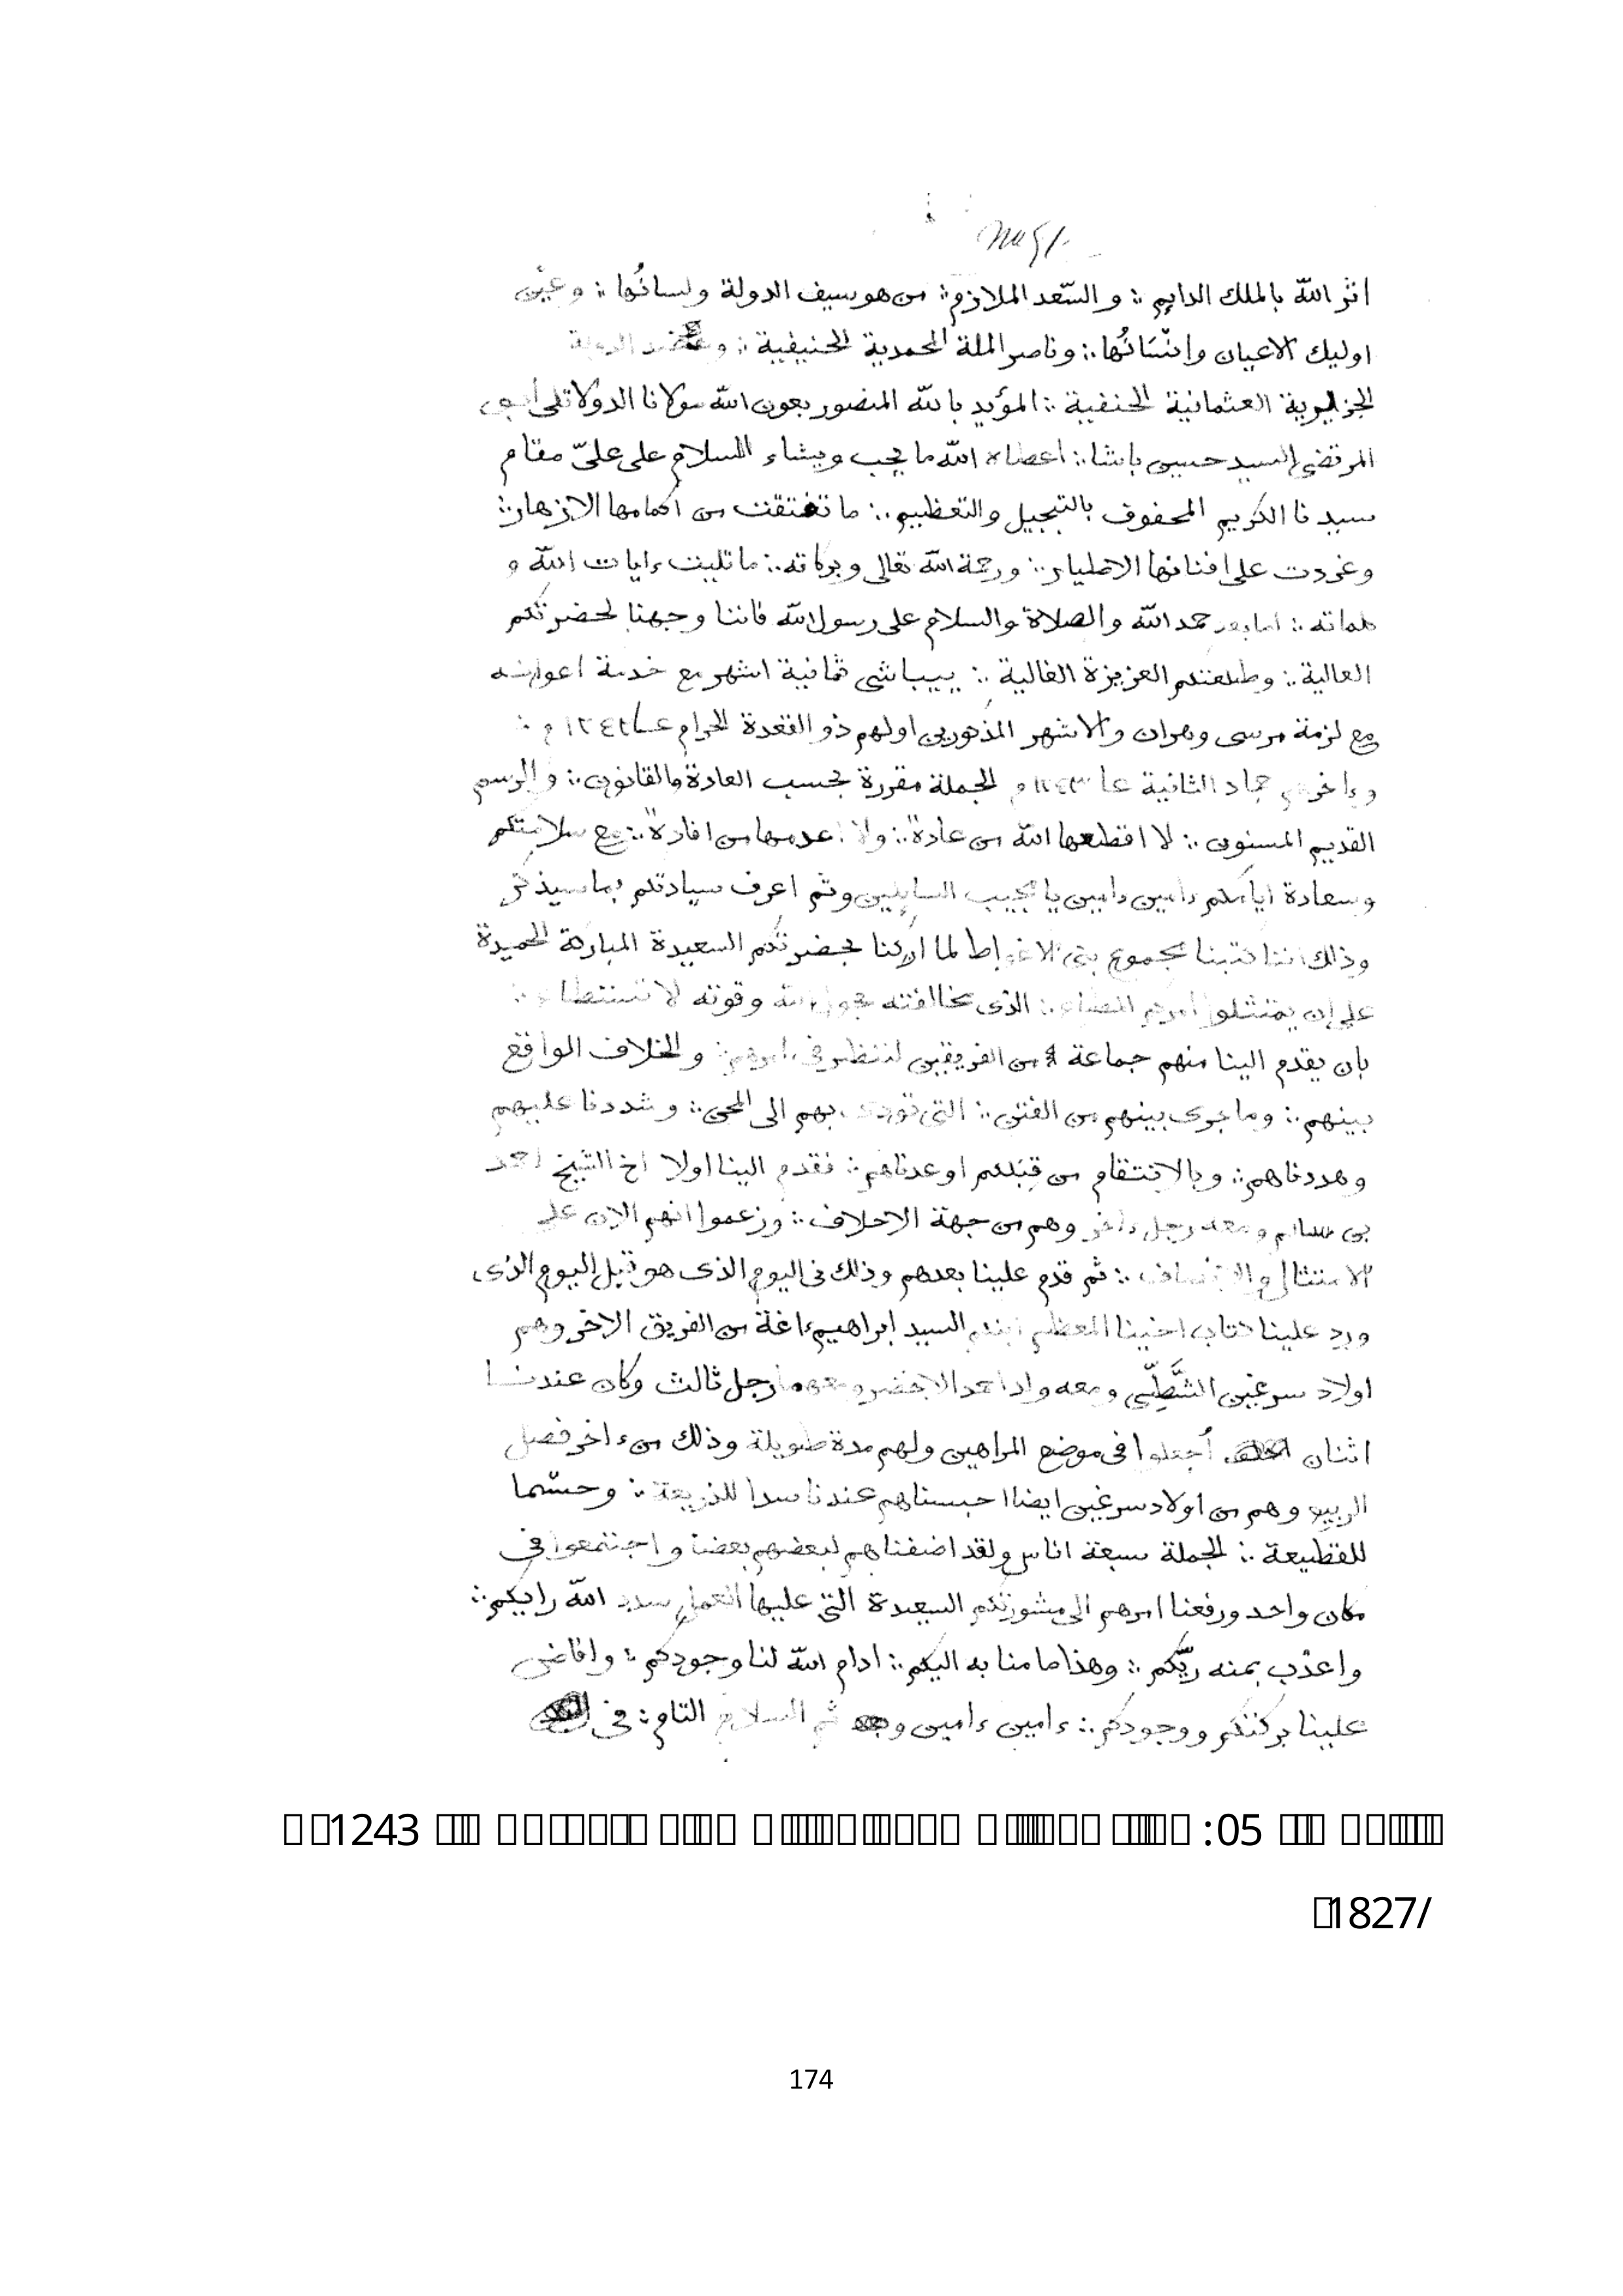 اثر الله بالملك الدايم ؞ والسّعد الملازم ؞ من هو سيف الدولة ولسانُها ؞ وعيْن
اوليك الاعيان وانْسَانُها ؞ وناصر الملة المحمدية الحنيفية ؞
الجزايرية العثمانية الحنفية ؞ المؤيد بالله المنصور بعون الله مولانا الدولاتلى
المرتضى السيد حسين باشا ؞ اعطاه الله ما يحب ويشاء السلام على علىّ مقام
سيدنا الكريم المحفوف بالتبجيل والتعظيم ؞ ما تفتقت من اكمامها الازهار ؞
وغردت على افنانها الاطيار ؞ ورحمة الله تعالى وبركاته ؞ ما تليت ءايات الله و
كلماته ؞ اما بعد حمد الله والصلاة والسلام على رسول الله فاننا وجهنا لحضرتكم
العالية ؞ وطلعتكم العزيزة الغالية ؞ بيباشى ثمانية اشهر مع خدمة اعوانه
مع لزمة مرسى وهران والاشهر المذكورين اولهم ذو القعدة الحرام عـام ١٢٤٢
وءاخرهم جماد الثانية عام ١٢٤٣ الجملة مقررة بحسب العادة والقانون ؞ والرسم
القديم المسنون ؞ لا اقطعها الله من عادةً ؞ ولا اعدمها من افادةً ؞ مع سلامتكم
وسعادة ايامكم ءامين ءامين يا مجيب السايلين وثم اعرف سيادتكم بما سيذكر
وذلك اننا كتبنا لمجموع بنى الاغواط لما اركنا بحضرتكم السعيدة المباركة الحميدة
على ان يمتثلوا امركم المطاع ؞ الذى مخالفته بحول الله وقوته لا تستطاع ؞
بان يقدم الينا منهم جماعة من الفريقين لننظر فى امرهم ؞ والخلاف الواقع
بينهم ؞ وما جرى بينهم من الفتن ؞ التى تودى بهم الى المحن ؞ وشددنا عليهم
وهددناهم ؞ وبالانتقام من قِبَلكم اوعدناهم ؞ فقدم الينا اولا اخ الشيخ احمد
بن سالم ومعه رجل ءاخر وهم من جهة الاحلاف ؞ وزعموا انهم الان على
الامتثال ؞ ثم قدم علينا بعدهم وذلك فى اليوم الذى هو قبل اليوم الذى
ورد علينا كتاب اخينا المعظم ابنكم السيد ابراهيم ءاغة من الفريق الاخر وهم
اولاد سرغين الشَّطِّى ومعه ولد احمد الاخضر ومعهما رجل ثالث وكان عندنـا
اثنان أجعلوا فى موضع المراهين ولهم مدة طويلة وذلك من ءاخر فصل
الربيع وهم من اولاد سرغين ايضا احبسناهم عندنا سدا للذريعة ؞ وحسْما
للقطيعة ؞ الجملة سبعة اناس ولقد اضفناهم لبعضهم بعضا واجتمعوا فى
مكان واحد ورفعنا امرهم الى مشورتكم السعيدة التى عليها العمل سدد الله رايكم ؞
واعذب بمنه ريّكم ؞ وهذا ما منا به اليكم ؞ ادام الله لنا وجودكم ؞ وافاض
علينا بركتكم ووجودكم ؞ ءامين ءامين ثم السلام التام ؞ فى
:05
1243
/1827
174